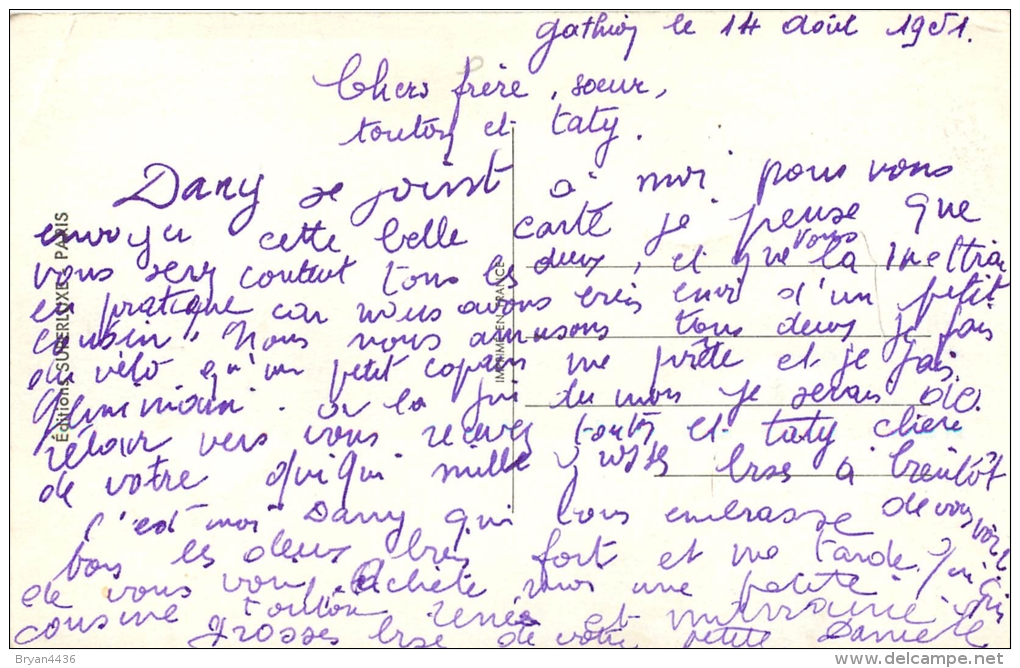 le 14 août 1951.
Chers frère, soeur,
tonton et taty.
Dany se joint à moi pour vous
envoyer cette belle carte je pense que
vous serez content tous les deux, et que vous la mettrai
en pratique car nous avons très envi d'un petit
cousin. Nous nous amusons tous deux je fais
du vélo qu'un petit copain me prête et je fais
. a la fin du mois je serais de
retour vers vous recevez tonton et taty chérie
de votre quiqui mille grosses bise à bientôt
c'est moi Dany qui vous embrasse de vous voir
tous les deux bien fort et me tarde
de vous voir achète moi une petite
cousine tonton rené et marraine
grosses bise de votre petite Danièle
Éditions SUPERLUXE - PARIS
IMPRIMÉ EN FRANCE
Bryan4436
delcampe.net